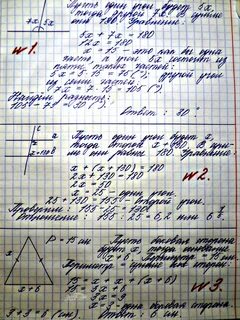 Пусть один угол будет 5x,
тогда другой 7x. В сумме
они 180. Уравнение:
5x + 7x = 180
12x = 180
x = 15 - это как бы одна
часть, а угол 5x состоит из
пяти таких частей:
5x = 5·15 = 75 (°); другой угол
из семи частей:
7x = 7·15 = 105 (°)
Найдем разность:
105 - 75 = 30 (°)
Ответ: 30°
№1.
Пусть один угол будет x,
тогда второй x + 130. В сум-
ме они равны 180. Уравнение:
x + (x + 130) = 180
2x + 130 = 180
2x = 50
x = 25 - один угол.
25 + 130 = 155 - второй угол.
Отношение: 155 : 25 = 6,2
№2.
a
x
x+130
P = 15 см.
Пусть боковая сторона
будет x, тогда основание
x + 6. Периметр = 15 см.
P = x + x + (x + 6)
15 = 3x + 6
3x = 9
x = 3
№3
x
x
x + 6
3 + 6 = 9 (см).